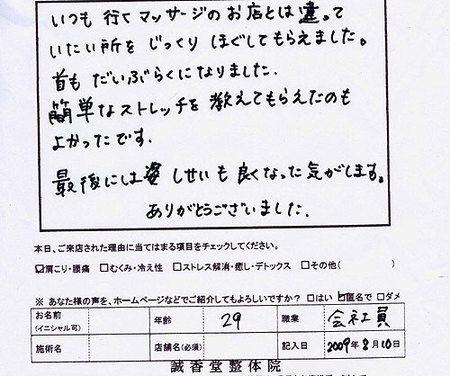 いつも行くマッサージのお店とは違って
いたい所をじっくりほぐしてもらえました。
首もだいぶらくになりました.
簡単なストレッチを教えてもらえたのも
よかったです.
最後には姿しせいも良くなった気がします。
ありがとうございました.
本日、ご来店された理由に当てはまる項目をチェックしてください。
☑肩こり・腰痛 □むくみ・冷え性 □ストレス解消・癒し・デトックス □その他( )
※ あなた様の声を、ホームページなどでご紹介してもよろしいですか? □はい ☑匿名で □ダメ
お名前 (イニシャル可) 年齢 29 職業 会社員
施術名 店舗名(必須) 記入日 2009年8月10日
誠香堂整体院